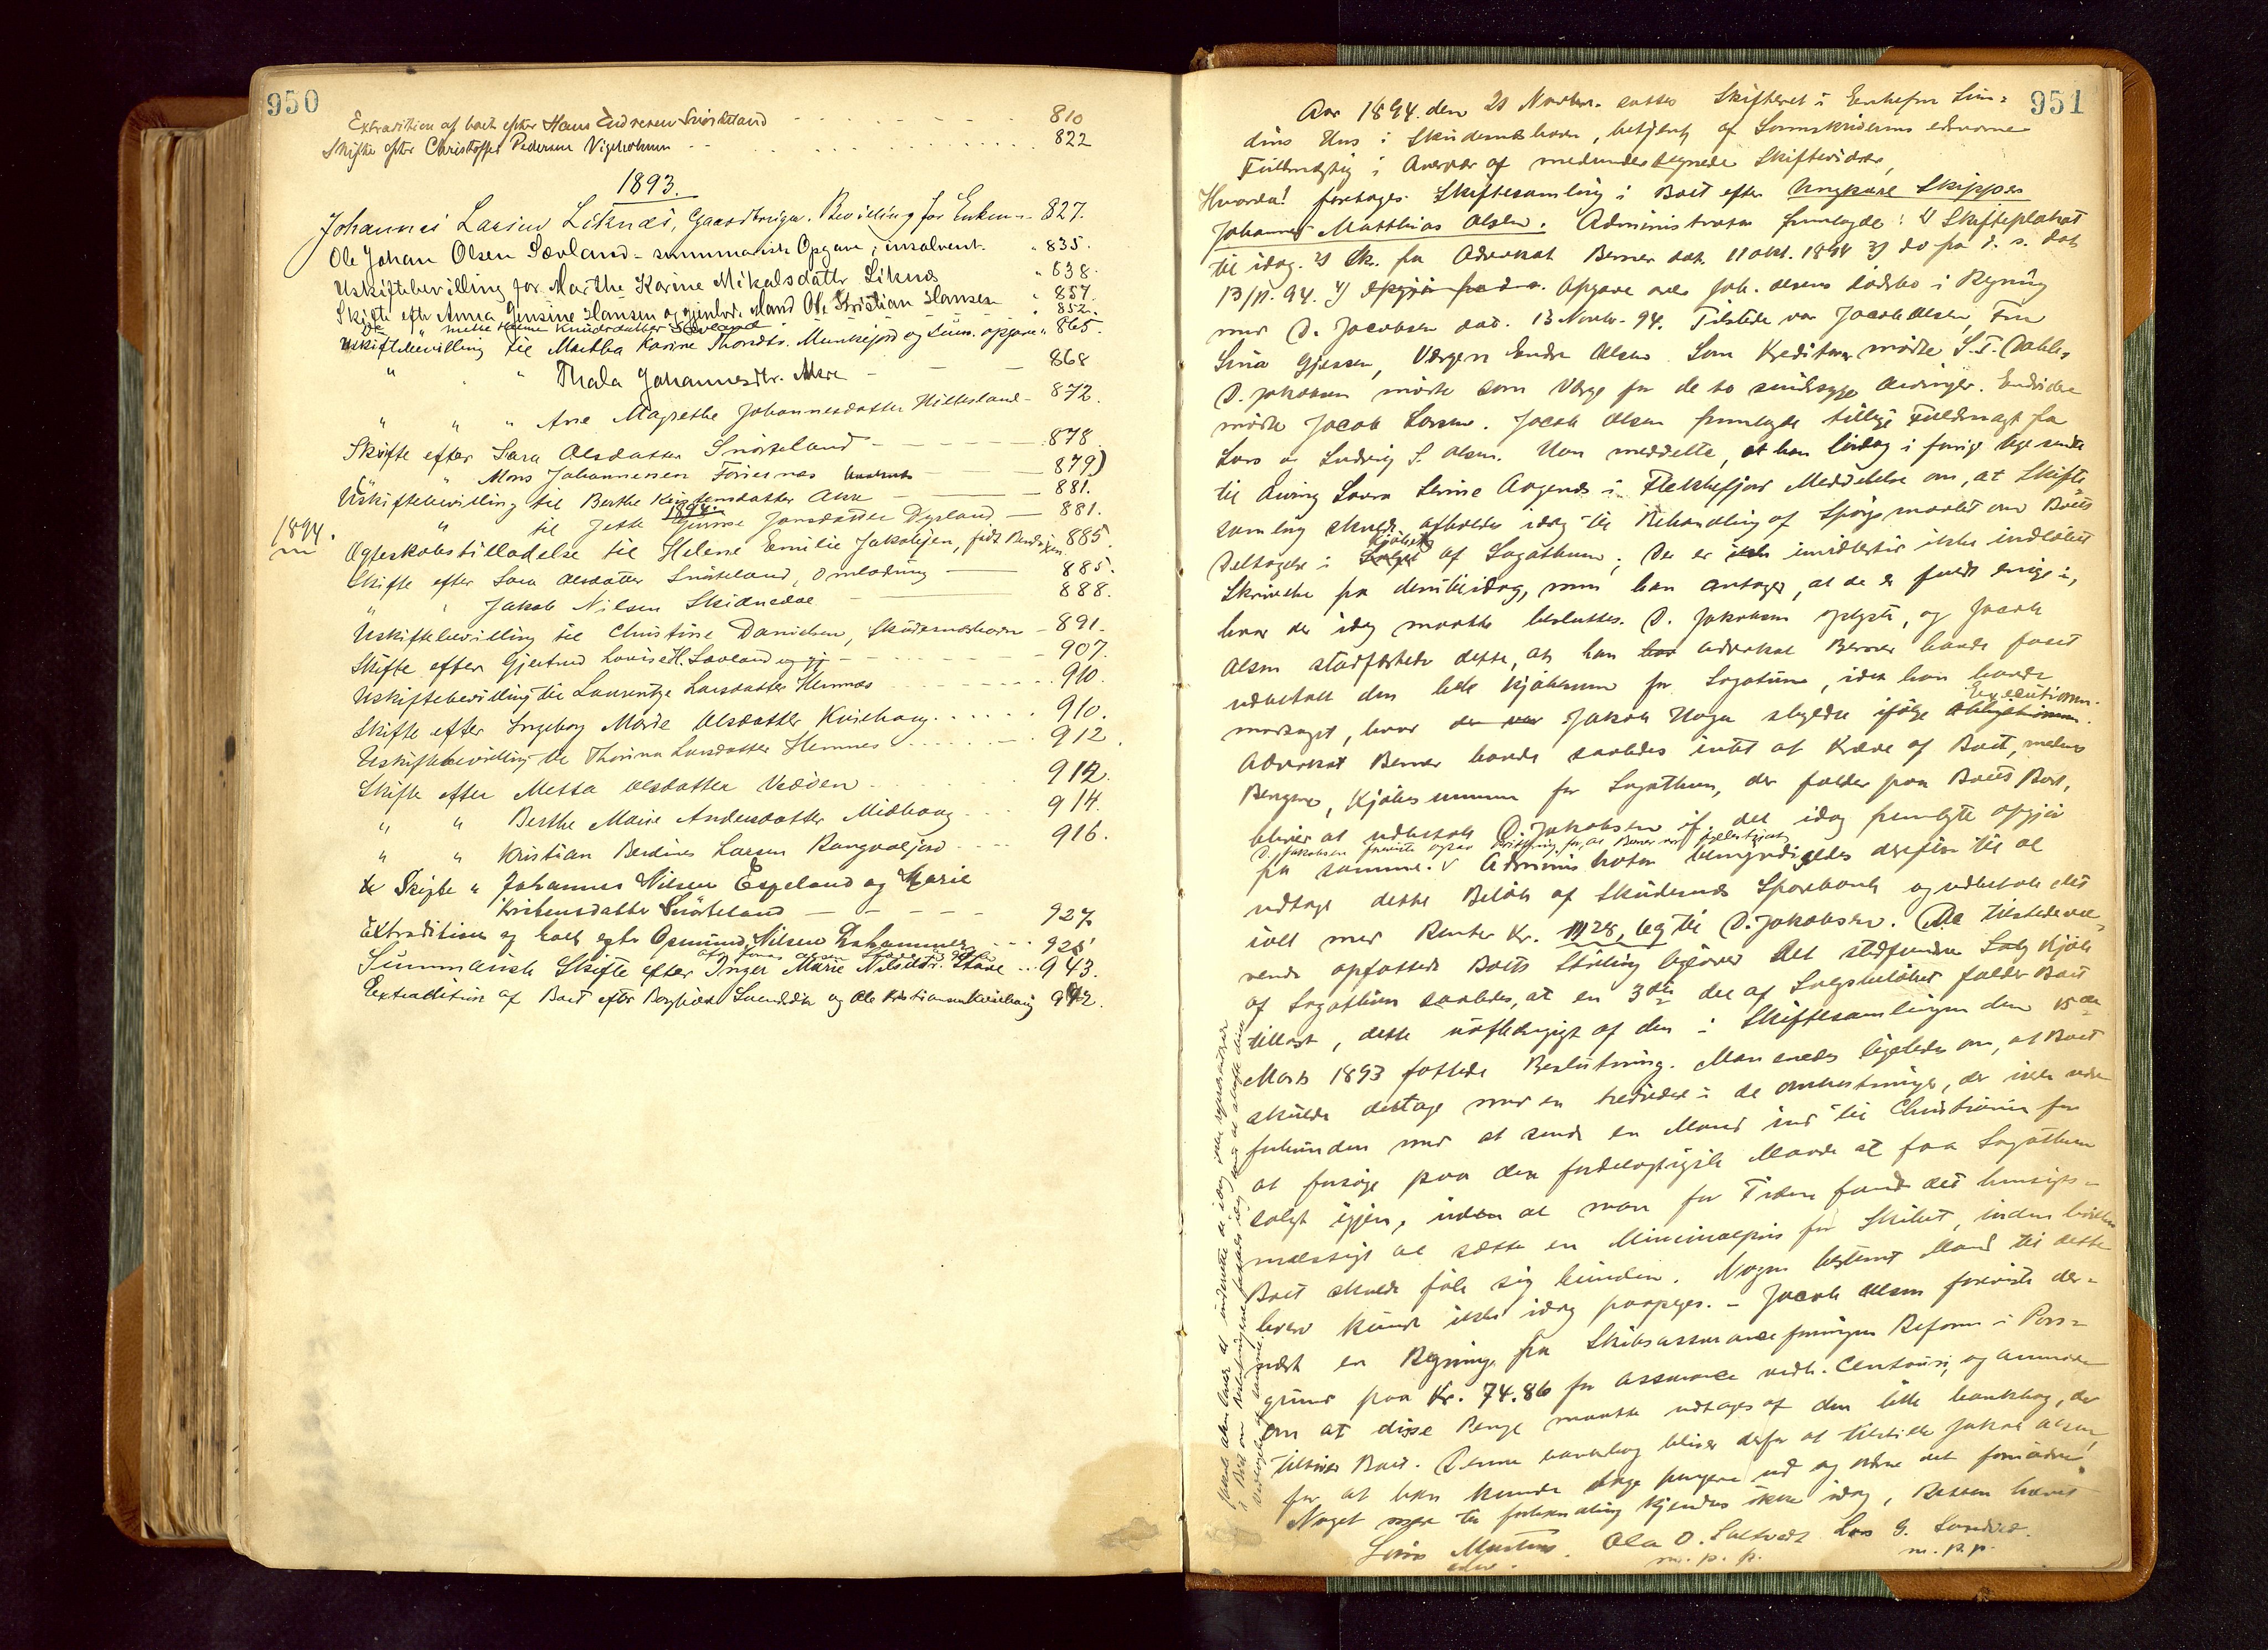 950
Extradition af boet efter Hans Endresen Snörteland - - - - - 810
Skifte efter Christoffer Pedersen Vigeholmen - - . . . . . . 822
1893.
Johannes Larsen Liknæs, Gaardbruger. Bevilling for Enken - - 827.
Ole Johan Olsen Sævland - summarisk Opgave; insolvent. " 835.
Uskiftebevilling for Marthe Karine Mikalsdatter Liknæs " 838.
Skifte eftr Anna Gensine Hansen og gjenlev. Mand Ole Kristian Hansen " 857.
do " Mette Helene Knudsdatter Sævland " 852.
Uskiftebevilling til Martha Karine Thorsdtr. Munkejord og sum. opgave " 865.
" " " Thala Johannesdtr. Akre - - - 868
" " " Ane Magrethe Johannesdatter Hillesland - 872.
Skifte efter Sara Olsdatter Snörteland - - - - 878
(" " Mons Johannesen Fosenæs - - 879)
Uskiftebevilling til Berthe Kristensdatter Akre - - 881.
1894.
" til Jette Gurine Jonsdatter Dysland - 881.
1894.
Ægteskabstilladelse til Helene Emilie Jakobsen, født Bendixen 885.
Skifte efter Sara Olsdatter Snörteland, Omlodning - 885.
" " Jakob Nilsen Skidnedal - 888.
Uskiftebevilling til Christine Danielsen, Skudesneshavn - 891.
Skifte efter Gjertrud Lovise H. Sævland og gj - - - 907.
Uskiftebevilling til Laurentze Larsdatter Hemnes - - - 910.
Skifte efter Ingeborg Marie Olsdatter Kvilhaug . . . . . 910.
Uskiftebevilling til Thorina Larsdatter Hemnes . . . . . 912.
Skifte efter Metta Olsdatter Vedöen . . . . 912.
" " Berthe Marie Andersdatter Midhaug . . 914.
" " Kristian Berdines Larsen Rangvaljord - - - - 916.
Skifte " Johannes Nilsen Espeland og Marie
Kristensdatter Snörteland - - - - - 927
Extradition af boet efter Osmund Nilsen Dahammer - - - 928
Summarisk Skifte efter Inger Marie Nilsdtr. Stave . . 943.
Extradition af Boet efter Borghild Svendsdtr og Ole Kristiansen Kvilhaug 942.
951
Aar 1894 den 21 Novbr. sattes Skifteret i Enkefru Lun=
dins Hus i Skudesneshavn, betjent af Sorenskriverens edsvorne
Fuldmægtig i Overvær af medundertegnede Skiftevidner,
Hvorda! foretoges Skiftesamling i Boet efter Ungkarl Skipper
Johannes Matthias Olsen. Administrator fremlagde: 1) Skifteplakat
til idag. 2) Sk. fra Advokat Berner dat. 11 okt. 1894 3) do fra d. s. dat
13/11. 94. 4) Opgave over Joh. Olsens dödsbo i Regning
med D. Jacobsen dat. 13 Novbr. 94. Tilstede var Jacob Olsen, Fru
Lina Gjessen, Værgen Endre Olsen. Som Kreditorer mödte S. T. Dahle,
D. Jakobsen mödte som Værge for de to sindssyge Arvinger. Endvidere
mödte Jacob Larsen. Jacob Olsen fremlagde tillige Fuldmagt fra
Lars og Ludvig S. Olsen. Han meddelte, at han lördag i forrige Uge sendte
til Arving Laura Levine Aagenæs i Flekkefjord Meddelelse om, at Skifte
samling skulde afholdes idag til Behandling af Spörgsmaalet om Boets
Deltagelse i Kjöbet af Sagathun; Der er imidlertid ikke indlöbet
Skrivelse fra dem til idag, men han antager, at de er fuldt enige i,
hvad der idag maatte besluttes. D. Jakobsen oplyste, og Jacob
Olsen stadfæstede dette, at han advokat Berner havde faaet
udbetalt den hele Kjöbesum for Sagatun, idet han havde
modtaget, hvad Jakob Haga skyldte ifölge Exekutionen.
Advokat Berner havde saaledes intet at kræve af Boet, medens
Pengene, Kjöbesummen for Sagathun, der falder paa Boets Part,
bliver at udbetale D. Jakobsen if. det idag fremlagte opgjör
D. Jakobsen foreviste ogsaa kvittering for, at Berner var fyldestgjort
for samme. v Administrator bemyndigedes derefter til at
udtage dette Belöb af Skudesnæs Sparebank og udbetale det
ialt med Renter Kr. 1128,69 til D. Jakobsen. De tilstedevæ=
rende opfattede Boets Stilling ligeover det stedfundne Kjöb
af Sagathun saaledes, at en 3die del af Salgsbelöbet falder Boet
tillast, dette uafhængigt af den i Skiftesamlingen den 15de
Marts 1893 fattede Beslutning. Man enedes ligeledes om, at Boet
skulde deltage med en trediedel i de omkostninger, der vilde være
forbunden med at sende en Mand ind til Christiania for
at forsöge paa den fordelagtigste Maade at faa Sagathun
solgt igjen, uden at man for Tiden fandt det hensigts=
mæssigt at sætte en Minimalpris for Skibet, inden hvilken
Boet skulde föle sig bunden. Nogen bestemt Mand til dette
hverv kunde ikke idag paapeges. - Jacob Olsen foreviste der=
næst en Regning fra Skibsassuranceforeningen Reform i Pors=
grund paa Kr. 74.86 for assurance vedk. Centauri, og anmodede
om at disse Penge maatte udtages af den lille bankbog, der
tilhörer Boet. Denne bankbog bliver derfor at tilstille Jakob Olsen,
for at han kunde tage pengene ud og ordne det fornödne.
Noget mere til forhandling kjendtes ikke idag, Retten hævet
Lina Mortens. Ola O. Saltvedt Lars G. Sandvid.
edsv. m. p. p. m. p. p.